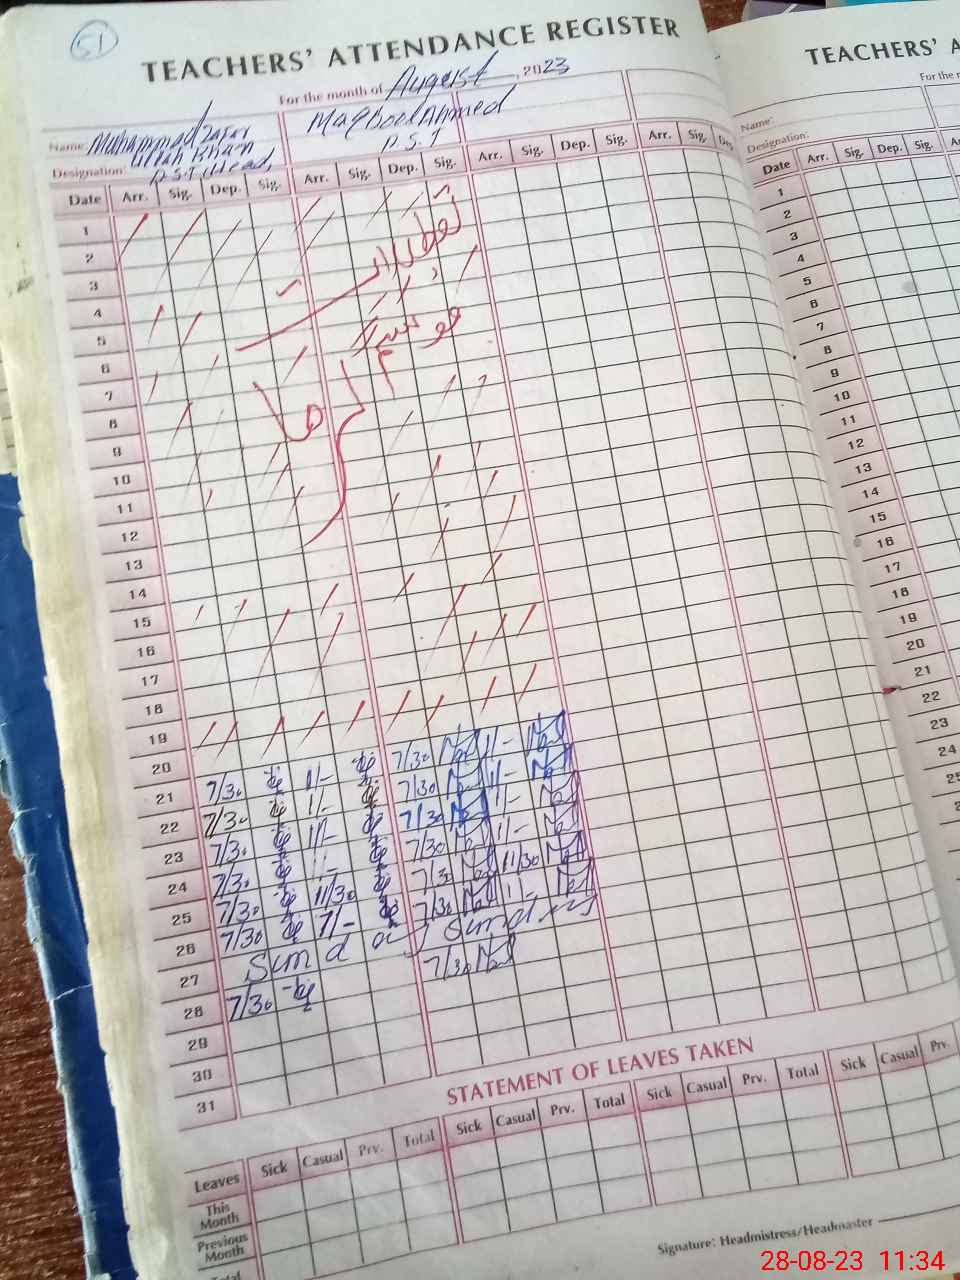 51
TEACHERS' ATTENDANCE REGISTER
For the month of August, 2023
Name: Muhammad Zafar Maqbool Ahmed
Ullah Khan P.S.T
Designation: P.S.T Head
Date Arr. Sig. Dep. Sig. Arr. Sig. Dep. Sig. Arr. Sig. Dep. Sig. Arr. Sig. Dep.
1
2
3
4
5
6
7
8
9
10
11
12
13
14
15
16
17
18
19
تعطیلات
موسم گرما
20
21 7/30 11/- 7/30 11/-
22 7/30 11/- 7/30 11/-
23 7/30 11/- 7/30 11/-
24 7/30 11/- 7/30 11/-
25 7/30 11/30 7/30 11/30
26 7/30 7/30 11/-
27 Sunday Sunday
28 7/30 7/30
29
30
31
STATEMENT OF LEAVES TAKEN
Leaves Sick Casual Prv. Total Sick Casual Prv. Total Sick Casual Prv. Total Sick Casual Prv.
This Month
Previous Month
Total
Signature: Headmistress/Headmaster
TEACHERS' A
For the m
Name:
Designation:
Date Arr. Sig. Dep. Sig.
1
2
3
4
5
6
7
8
9
10
11
12
13
14
15
16
17
18
19
20
21
22
23
24
25
28-08-23 11:34